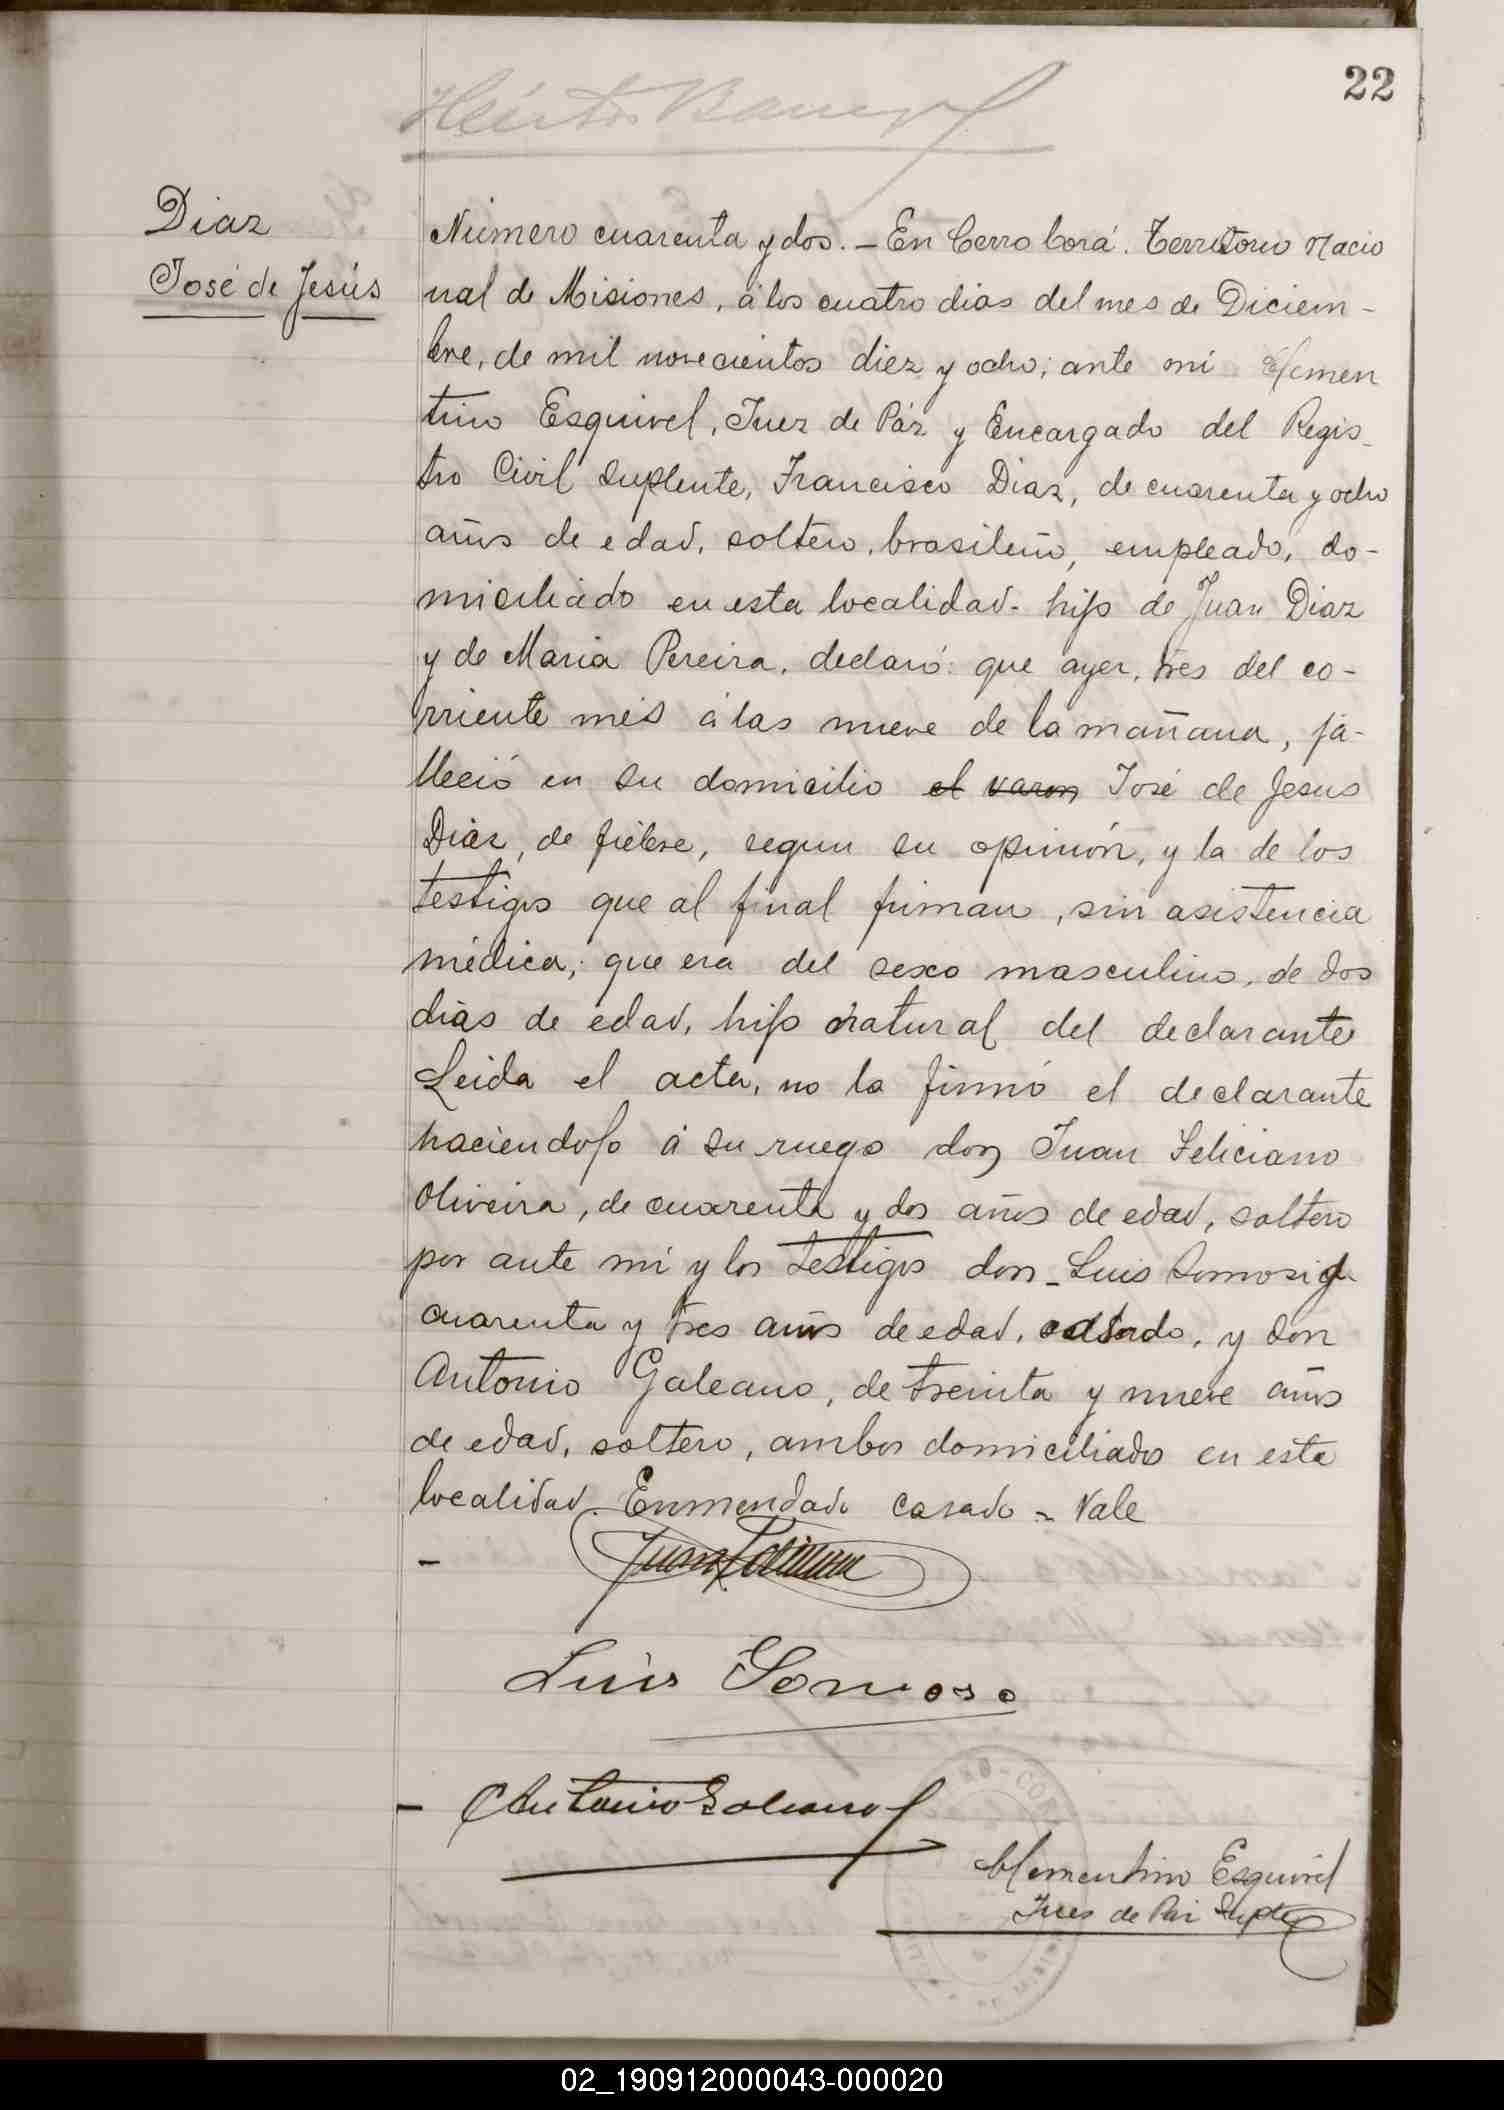 22
Diaz
José de Jesús
Número cuarenta y dos. - En Cerro Corá. Territorio Nacio
nal de Misiones, á los cuatro dias del mes de Diciem-
bre, de mil novecientos diez y ocho; ante mi Clemen
tino Esquivel, Juez de Páz y Encargado del Regis-
tro Civil Suplente, Francisco Diaz, de cuarenta y ocho
años de edad, soltero, brasileño, empleado, do-
miciliado en esta localidad- hijo de Juan Diaz
y de Maria Pereira, declaró: que ayer, tres del co-
rriente mes á las nueve de la mañana, fa-
lleció en su domicilio el varon José de Jesus
Diaz, de fiebre, segun su opinión, y la de los
testigos que al final firman, sin asistencia
médica; que era del sexo masculino, de dos
dias de edad, hijo natural del declarante
Leida el acta, no la firmó el declarante
haciendolo á su ruego don Juan Feliciano
Oliveira, de cuarenta y dos años de edad, soltero
por ante mi y los testigos don Luis Somosi de
cuarenta y tres años de edad, casado, y don
Antonio Galeano, de treinta y nueve años
de edad, soltero, ambos domiciliados en esta
localidad. Enmendado casado = Vale
Luis Somoso
Antonio Galeano
Clementino Esquivel
Jues de Paz Supte
02_190912000043-000020